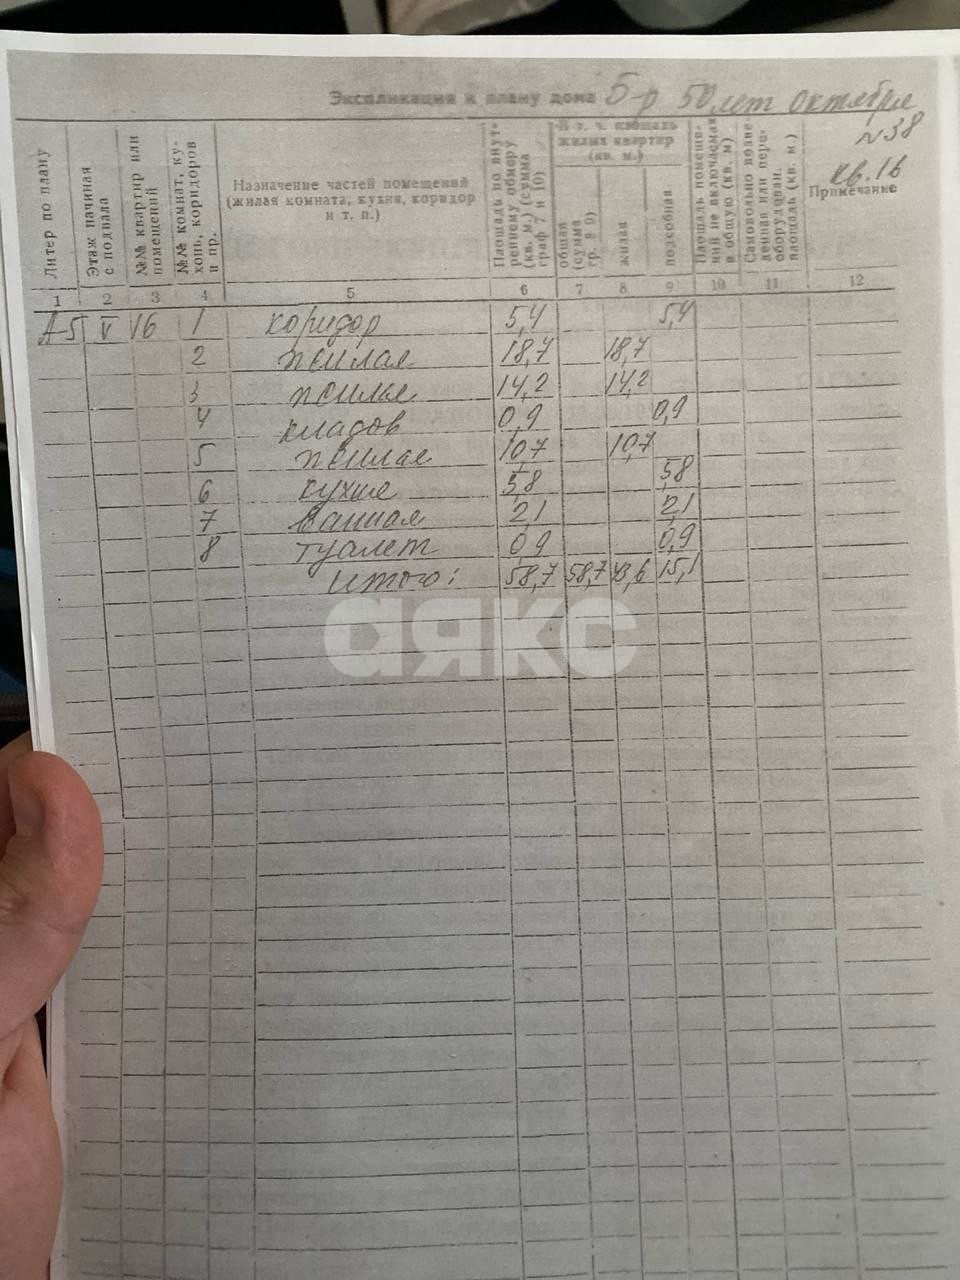 Экспликация к плану дома Б-р 50 лет Октября
№38
кв.16
Литер по плану
Этаж начиная с подвала
№№ квартир или помещений
№№ комнат, кухонь, коридоров и пр.
Назначение частей помещений
(жилая комната, кухня, коридор
и т. п.)
Площадь по внутреннему обмеру (кв. м.) (сумма граф 7 и 10)
В т. ч. площадь
жилых квартир
(кв. м.)
общая (сумма гр. 8 9)
жилая
подсобная
Площадь помещений не включаемая в общую (кв. м)
Самовольно возведенная или переоборудован. площадь (кв. м.)
Примечание
1 2 3 4 5 6 7 8 9 10 11 12
А-5 V 16 1 коридор 5,4 5,4
2 жилая 18,7 18,7
3 жилая 14,2 14,2
4 кладов 0,9 0,9
5 жилая 10,7 10,7
6 кухня 5,8 5,8
7 ванная 2,1 2,1
8 туалет 0,9 0,9
итого: 58,7 58,7 43,6 15,1
аякс